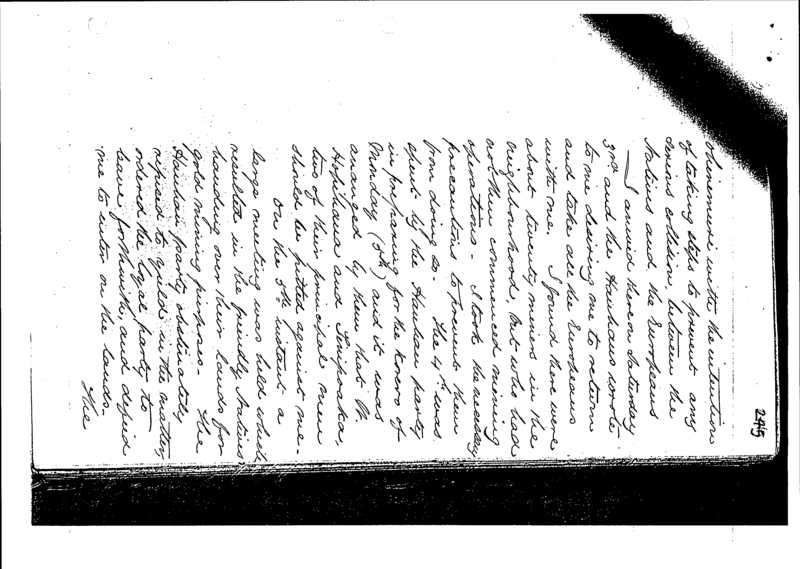 245
Ohinemuri with the intention
of taking steps to prevent any
serious collision, between the
Natives and the Europeans
— I arrived there on Saturday
3rd and the Hauhaus wrote
to me desiring me to return
and take all the Europeans
with me. I found there were
about twenty miners in the
neighbourhood, but who had
not then commenced mining
operations – I took the
precautions to prevent them
from doing so – The 4th was
spent by the Hauhau party
in preparing for the Korero of
Monday (5th) and it was
arranged by them that
Hopihana and
two of their principal men
should be pitted against me –
On the 5th instant a
large meeting was held which
resulted in the friendly Natives
handing over their lands for
gold mining purposes. The
Hauhau party obstinately
refused to yield in the matter,
ordered the loyal party to
leave forthwith, and defied
me to enter on the lands.
The